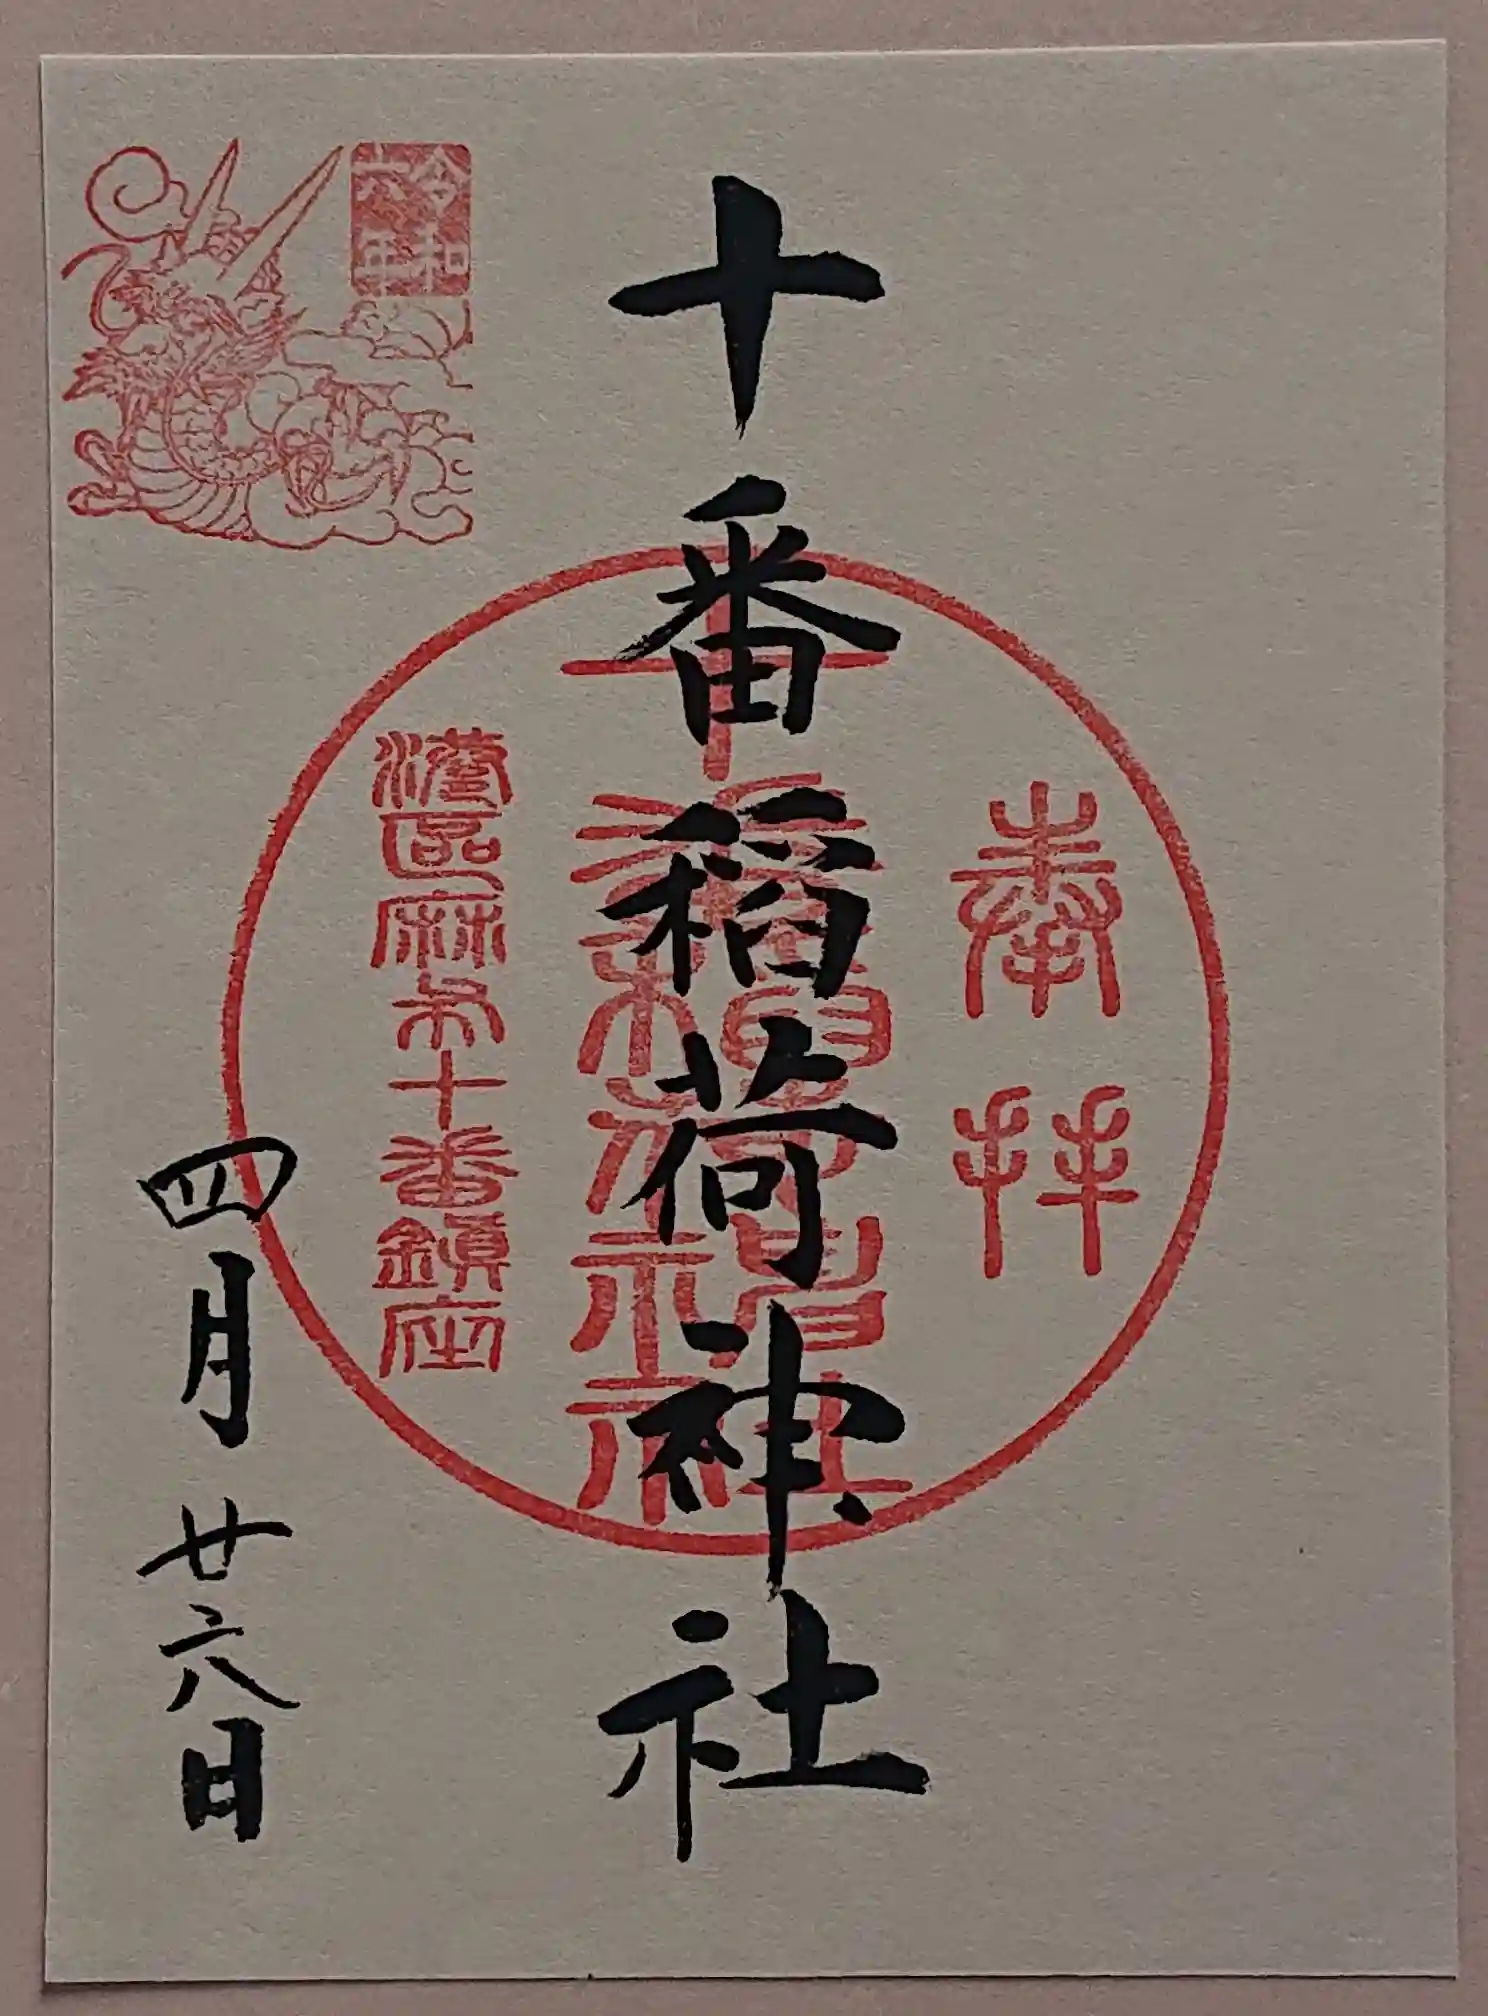 奉拝
十番稲荷神社
十番稲荷神社
港區麻布十番鎮座
令和六年
四月廿六日